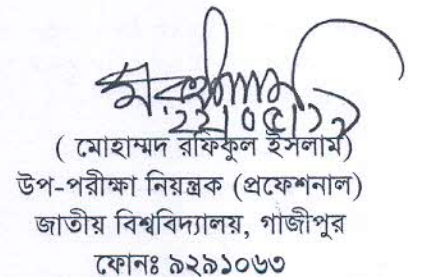 ২২।০৫।১৯
( মোহাম্মদ রফিকুল ইসলাম)
উপ-পরীক্ষা নিয়ন্ত্রক (প্রফেশনাল)
জাতীয় বিশ্ববিদ্যালয়, গাজীপুর
ফোনঃ ৯২৯১০৬৩